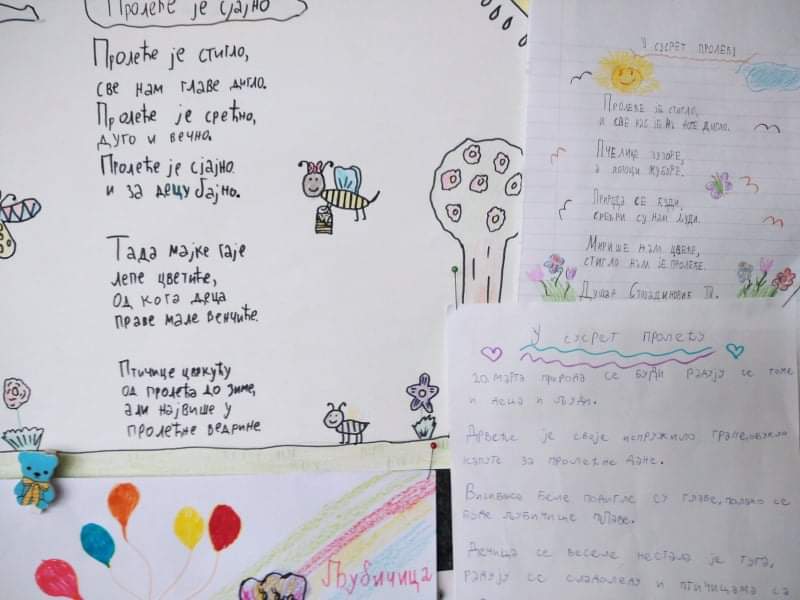 Пролеће је сјајно
Пролеће је стигло,
све нам главе дигло.
Пролеће је срећно,
дуго и вечно.
Пролеће је сјајно
и за децу бајно.
Тада мајке гаје
лепе цветиће,
од кога деца
праве мале венчиће.
Птичице цвркућу
од пролећа до зиме,
али највише у
пролећне ведрине
У сусрет пролећу
Пролеће је стигло,
и све нас је на ноге дигло.
Пчелице зузоре,
а потоци жуборе.
Природа се буди,
сви су нам људи.
Мирише нам цвеће,
стигло нам је пролеће.
Душан
У сусрет пролећу
20. марта природа се буди радују се томе
и деца и људи.
Дрвеће је своје испружило гране,
капуте за пролећне дане.
Висибабе беле подигле су главе, полако се
буде љубичице плаве.
Дечица се веселе нестала је туга,
радују се сладоледу и птичицама са
Љубичица